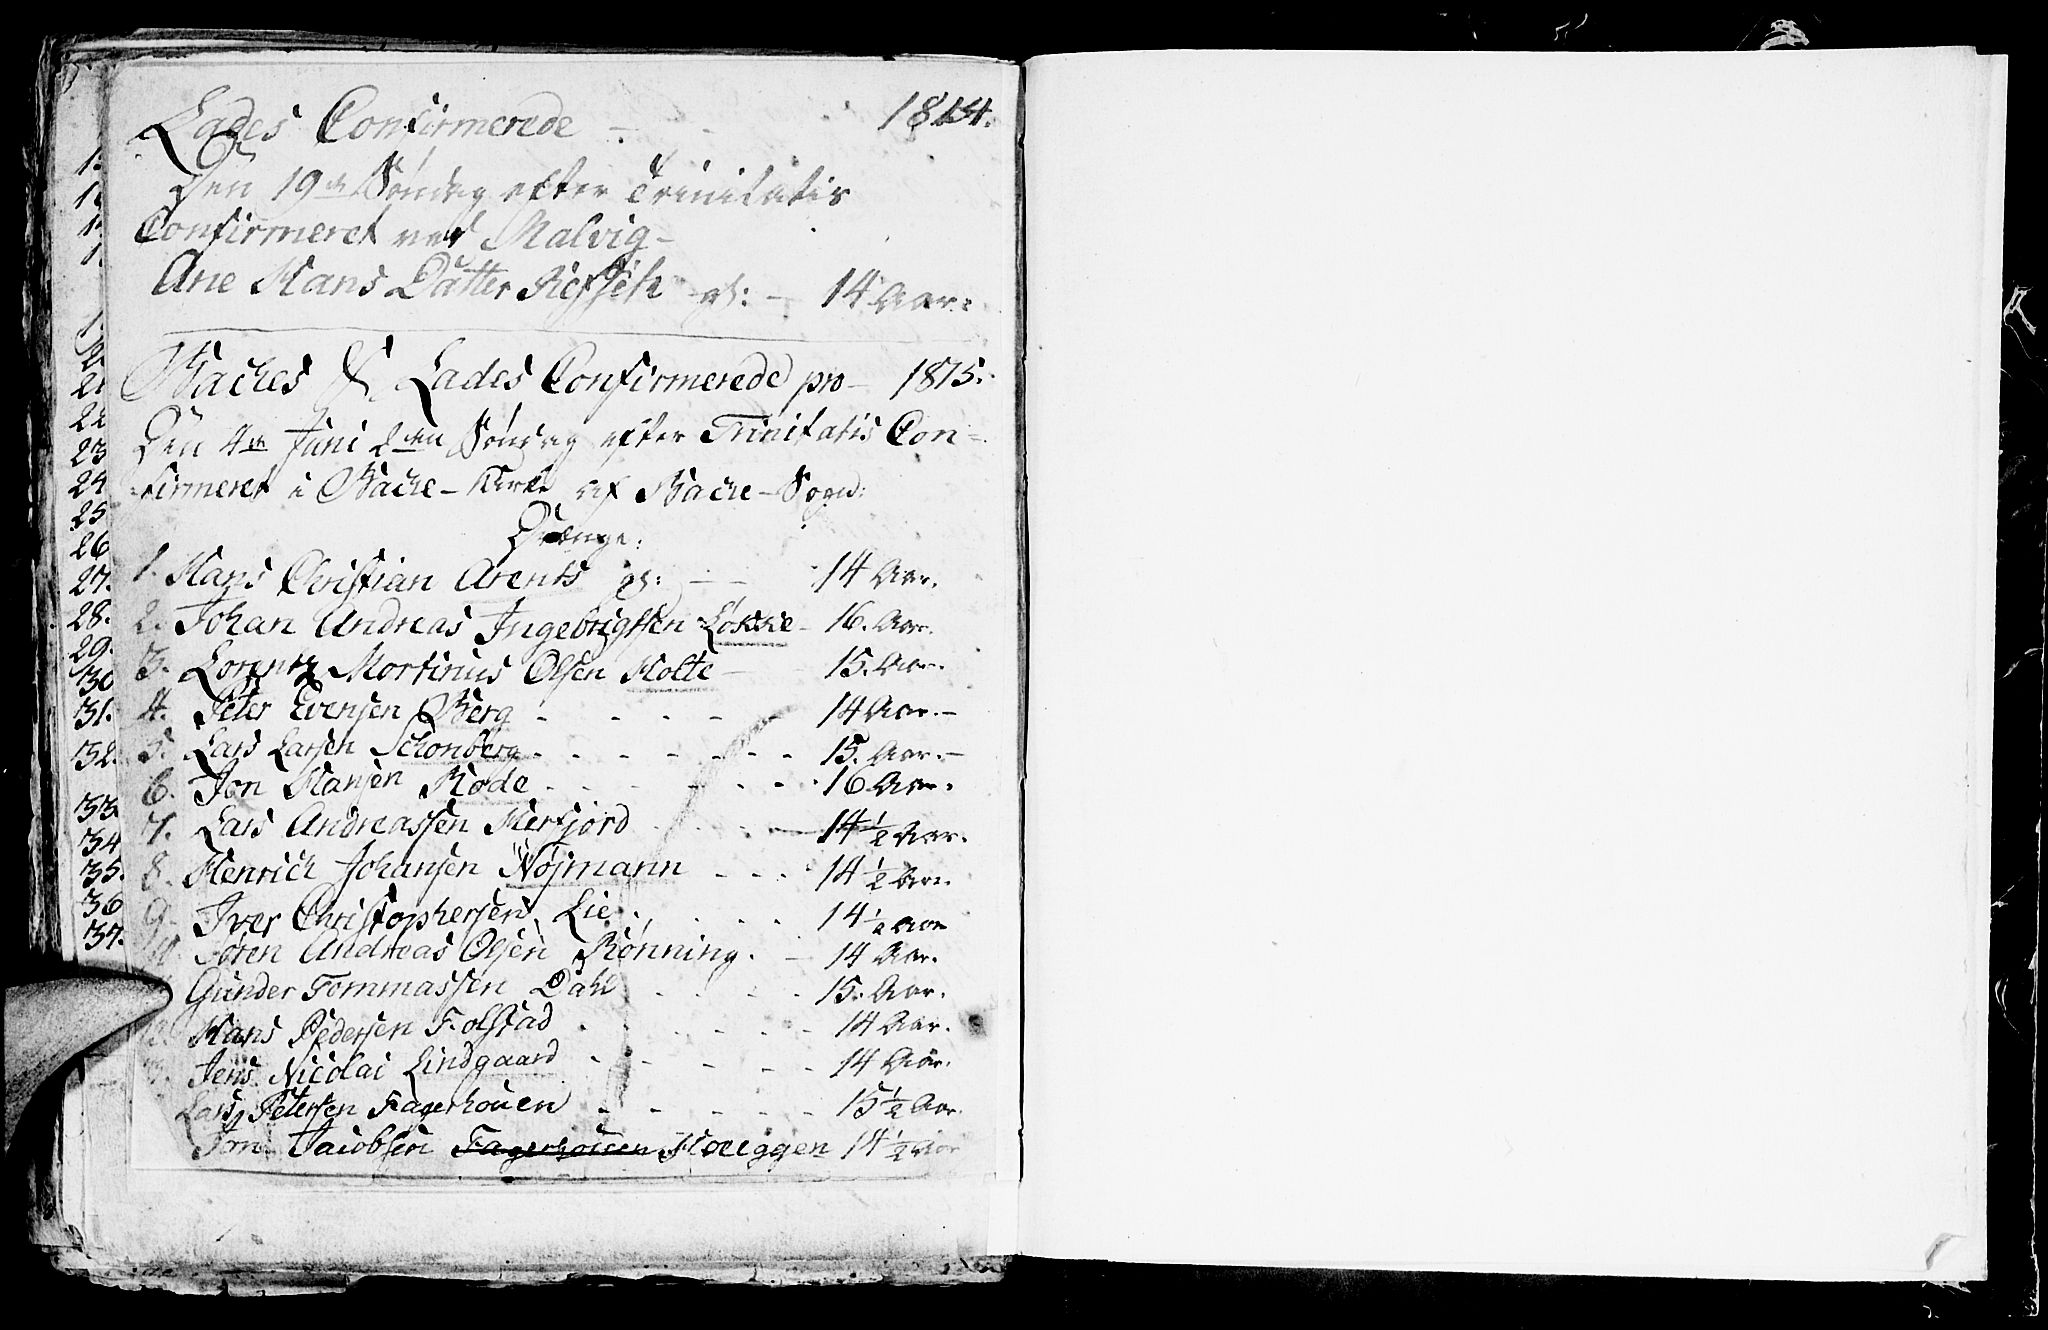 Lades Confirmerede - 1814.
Den 19de Søndag efter Trinitatis
Confirmeret ved Malvig-
Ane Hans Datter gl: - 14 Aar:
Baches & Lades Confirmerede pro - 1815.
Den 4de Juni 2den Søndag efter Trinitatis Con=
=firmeret i Bache-Kirke af Bache-Sogn:
Drænge:
1. Hans Christian Arents gl: - - 14 Aar.
2. Johan Andreas Ingebrigtsen Løkke - 16. Aar.
3. Lorentz Mortinus Olsen Holte - 15. Aar.
4. Peter Evensen Berg - - - - - 14 Aar. -
5. Lars Larsen Schonberg - - - - - - 15. Aar. -
6. Jon Hansen Rode - - - - - - 16 Aar.
7. Lars Andreassen Herfjord - - - 14 1/2 Aar.
8. Henrich Johansen Nøjmann - - - 14 1/2 Aar.
9. Iver Christophersen Lie - - - - 14 1/2 Aar
10. Søren Andreas Olsen Rønning. - 14 Aar.
Gunder Tommassen Dahl - - - - 15. Aar.
12. Hans Pedersen Folstad - - - - - 14 Aar.
Jens Nicolai Lindgaard - - - - - 14 Aar.
Lars Petersen Fagerhouen - - - - - 15 1/2 Aar.
Jon Jacobsen Fagerhouen 14 1/2 Aar
20
21
22
23
24
25
26
27.
28.
29.
30
31.
32.
33
34
35.
36
37.